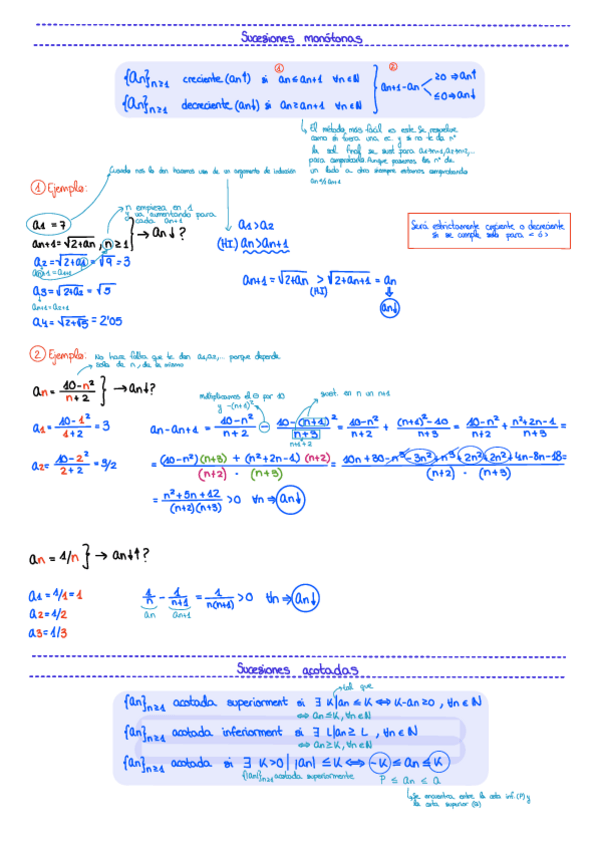 Sucesiones monótonas
{an}n≥1 creciente (an↑) si an≤an+1 ∀n∈ℕ ①
{an}n≥1 decreciente (an↓) si an≥an+1 ∀n∈ℕ
② an+1-an ≥0 ⇒an↑
≤0⇒an↓
El método más fácil es este. Se resuelve
como si fuera una ec. y si no te da nº
la sol final se sust para
para comprobarla. Aunque pasemos los nº de
un lado a otro siempre estamos comprobando
an≤an+1
Cuando nos lo dan hacemos uso de un argumento de inducción
① Ejemplo:
n empieza en 1
y va aumentando para
cada an+1
a1 = 7
an+1 = √2+an , n ≥ 1 } → an↓ ?
a1 > a2
(HI) an > an+1
Será estrictamente creciente o decreciente
si se cumple solo para < ó >
a2 = √2+a1 = √9 = 3
an+1 = a1+1
a3 = √2+a2 = √5
an+1 = a2+1
a4 = √2+√5 = 2'05
an+1 = √2+an > √2+an+1 = an
(HI)
an↓
② Ejemplo: No hace falta que te den a1, a2, ... porque depende
solo de n, da lo mismo
an = 10-n²/n+2 } → an↓?
multiplicamos el ⊖ por 10
y -(n+1)²
sust. en n un n+1
a1 = 10-1²/1+2 = 3
an-an+1 = 10-n²/n+2 - 10-(n+1)²/n+3 = 10-n²/n+2 + (n+1)²-10/n+3 = 10-n²/n+2 + n²+2n-1/n+3 =
n+1+2
a2 = 10-2²/2+2 = 3/2
= (10-n²)(n+3) + (n²+2n-1)(n+2)/(n+2) · (n+3) = 10n+30-n³-3n²+n³+2n²+2n²+4n-8n-18/(n+2) · (n+3) =
= n²+5n+12/(n+2)(n+3) > 0 ∀n ⇒ an↓
an = 1/n } → an↓↑?
a1 = 1/1 = 1
a2 = 1/2
a3 = 1/3
1/n - 1/n+1 = 1/n(n+1) > 0 ∀n ⇒ an↓
an an+1
Sucesiones acotadas
tal que
{an}n≥1 acotada superiorment si ∃ K|an ≤ K ⇔ K-an ≥ 0, ∀n∈ℕ
⇔ an≤K, ∀n∈ℕ
{an}n≥1 acotada inferiorment si ∃ L|an≥ L, ∀n∈ℕ
⇔ an≥K, ∀n∈ℕ
{an}n≥1 acotada si ∃ K>0 | |an| ≤ K ⇔ -K ≤ an ≤ K
{an}n≥1 acotada superiormente
P ≤ an ≤ Q
Se encuentra entre la cota inf. (P) y
la cota superior (Q)